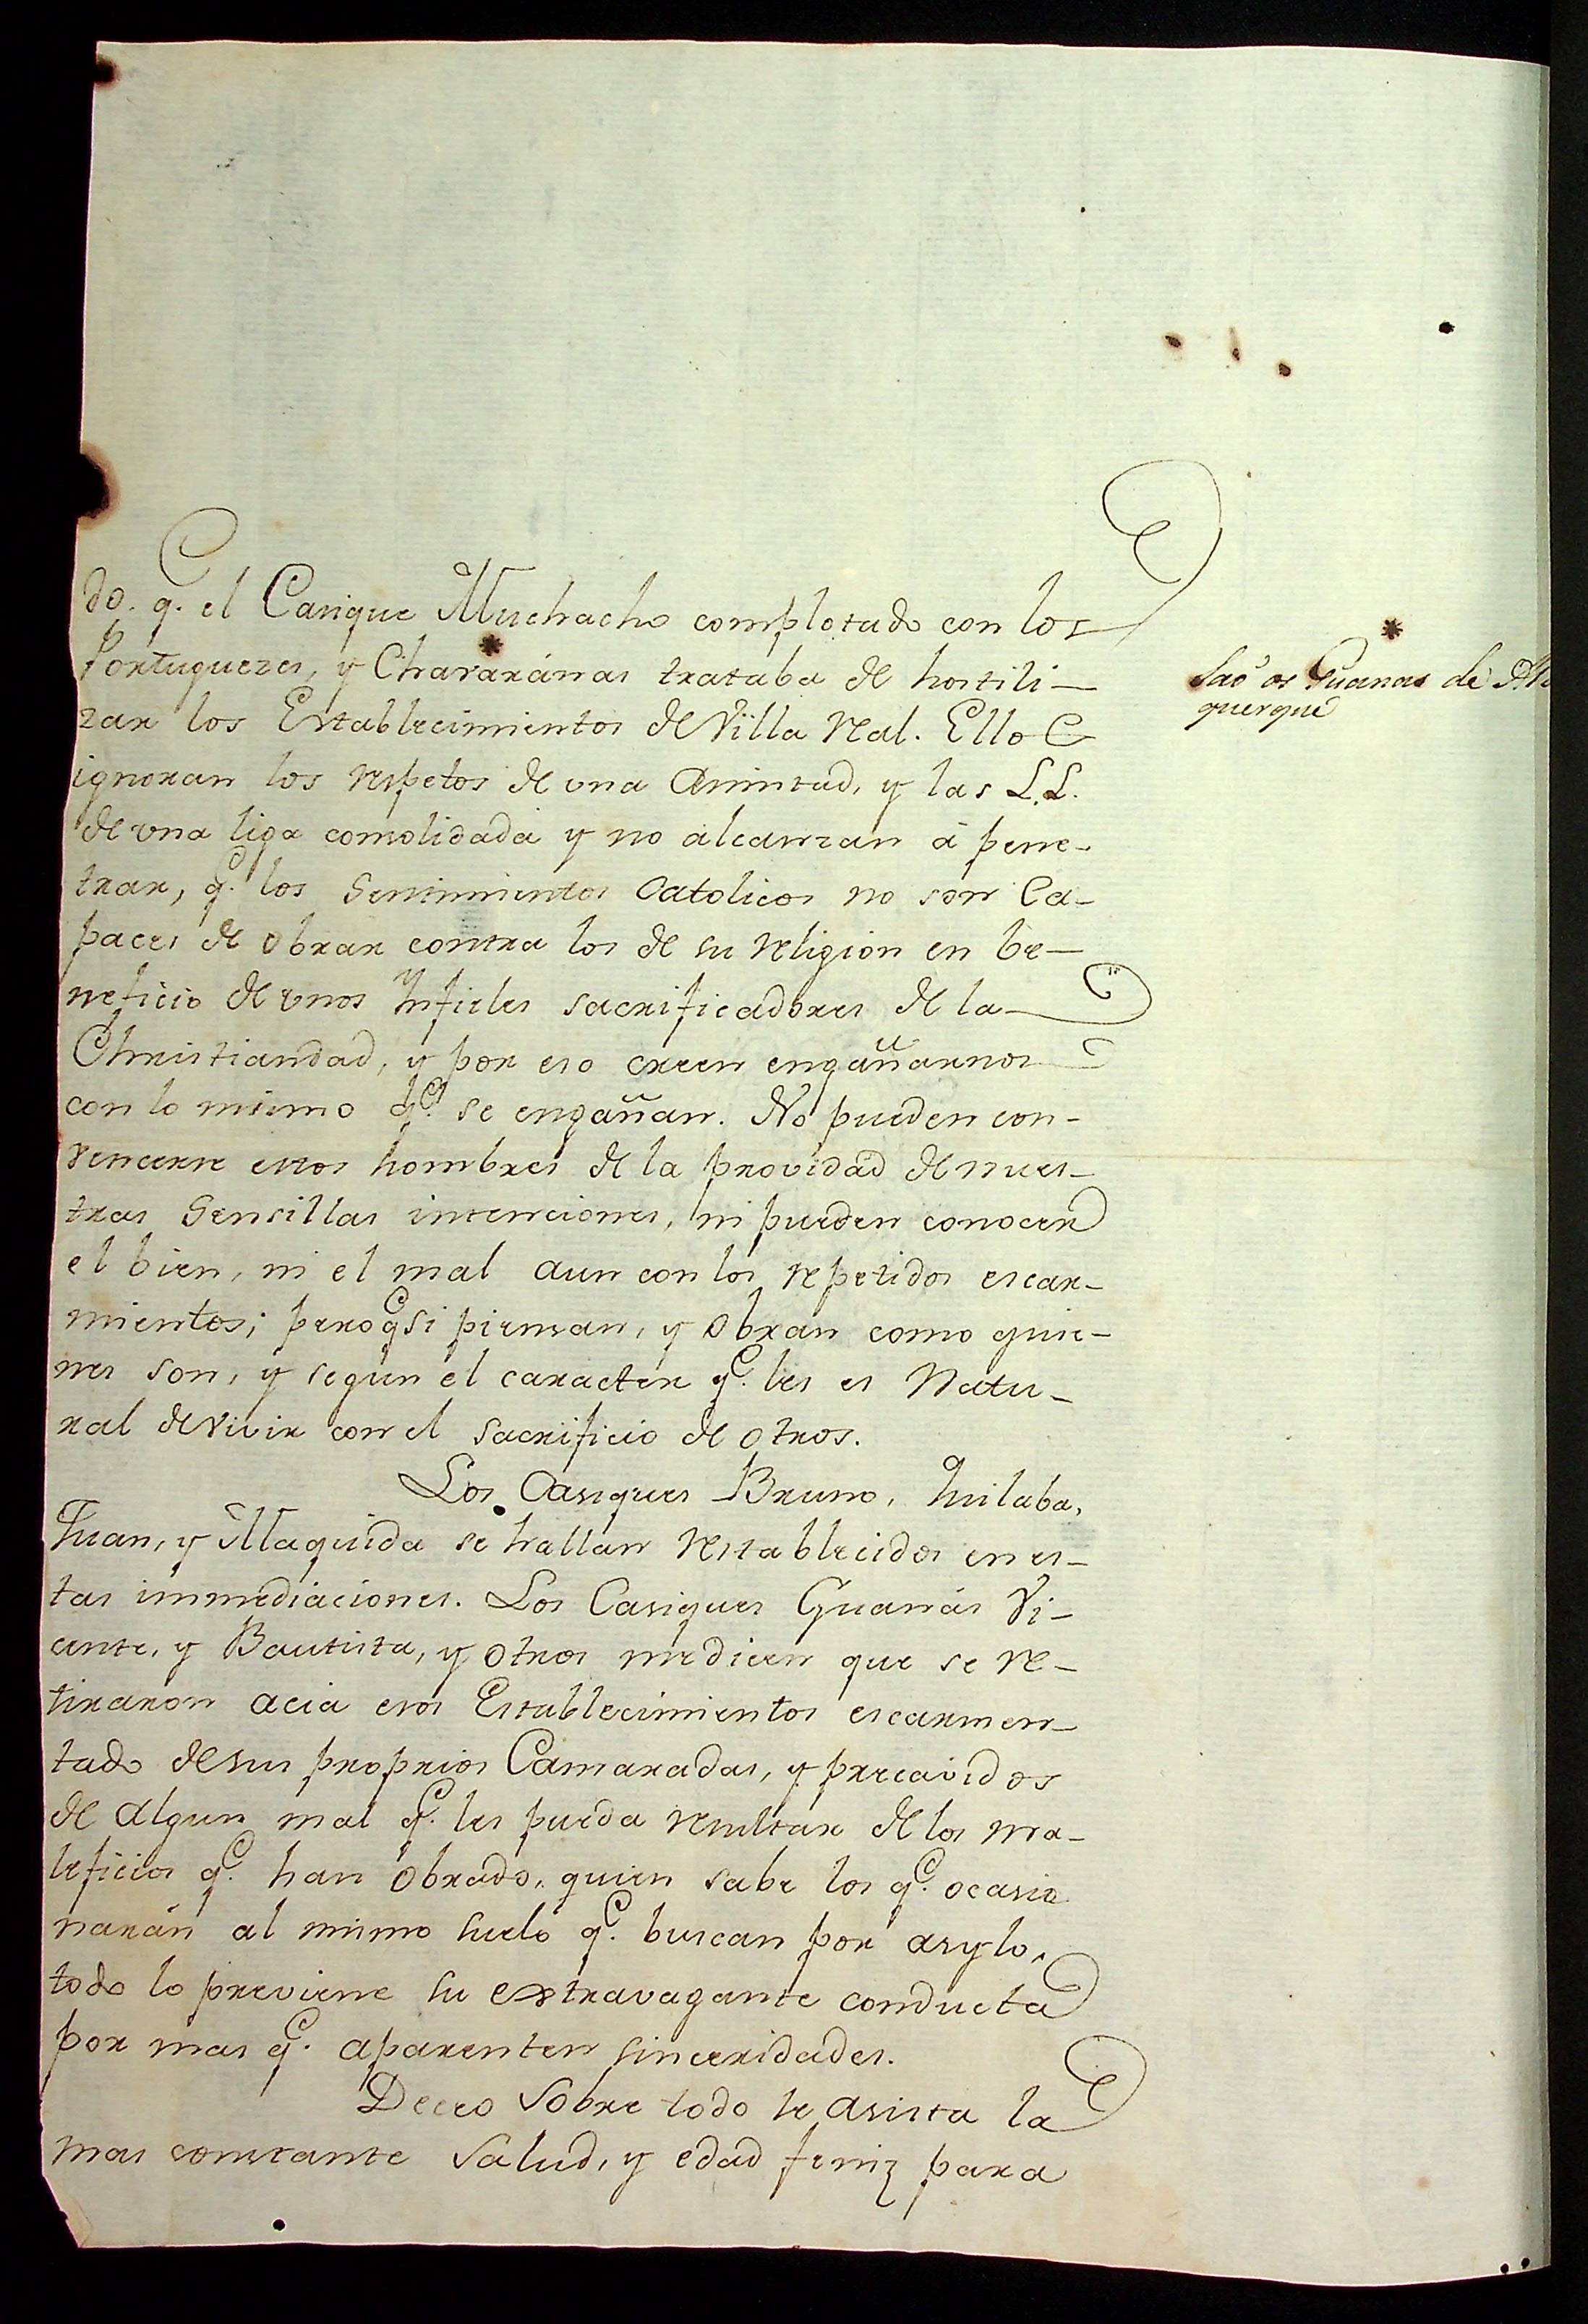 do. q.e el Casique Muchacho complotado con los
Portuguezes, y Chavaránas * trataba de hostili-
zar los Establecimientos de Villa Real. Ellos
ignoran los respetos de una Amistad, y las L.L.
de una liga consolidada y no alcanzan á pene-
trar, q.e los Sentimientos Catolicos no son Ca-
paces de obrar contra los de su religion en be-
neficio de unos Ynfieles sacrificadores de la
Christiandad, y por eso creen engañarnos
con lo mismo q.e se engañan. No pueden con-
vencerse estos hombres de la providad de nues-
tras Sensillas intenciones, ni pueden conocer
el bien, ni el mal aun con los repetidos escar-
mientos; pero q.e si piensan, y Obran como quie-
nes son, y segun el caracter q.e les es Natu-
ral de vivir con el sacrificio de otros.
Los Casiques Bruno, Quilaba,
Juan, y Maquida se hallan restablecidos en es-
tas immediaciones. Los Casiques Guanás Vi-
cente, y Bautista, y otros me dicen que se re-
tiraron acia esos Establecimientos escarmen-
tado de sus proprios Camaradas, y precavidos
de algun mal q.e les pueda resultar de los ma-
leficios q.e han obrado, quien sabe los q.e ocasio
narán al mismo suelo q.e buscan por asylo,
todo lo previene su extravagante conducta
por mas q.e aparenten sinceridades.
Deceo sobre todo le asista la
mas constante Salud, y edad feniz para
* Saõ os Guanas de Al
querque